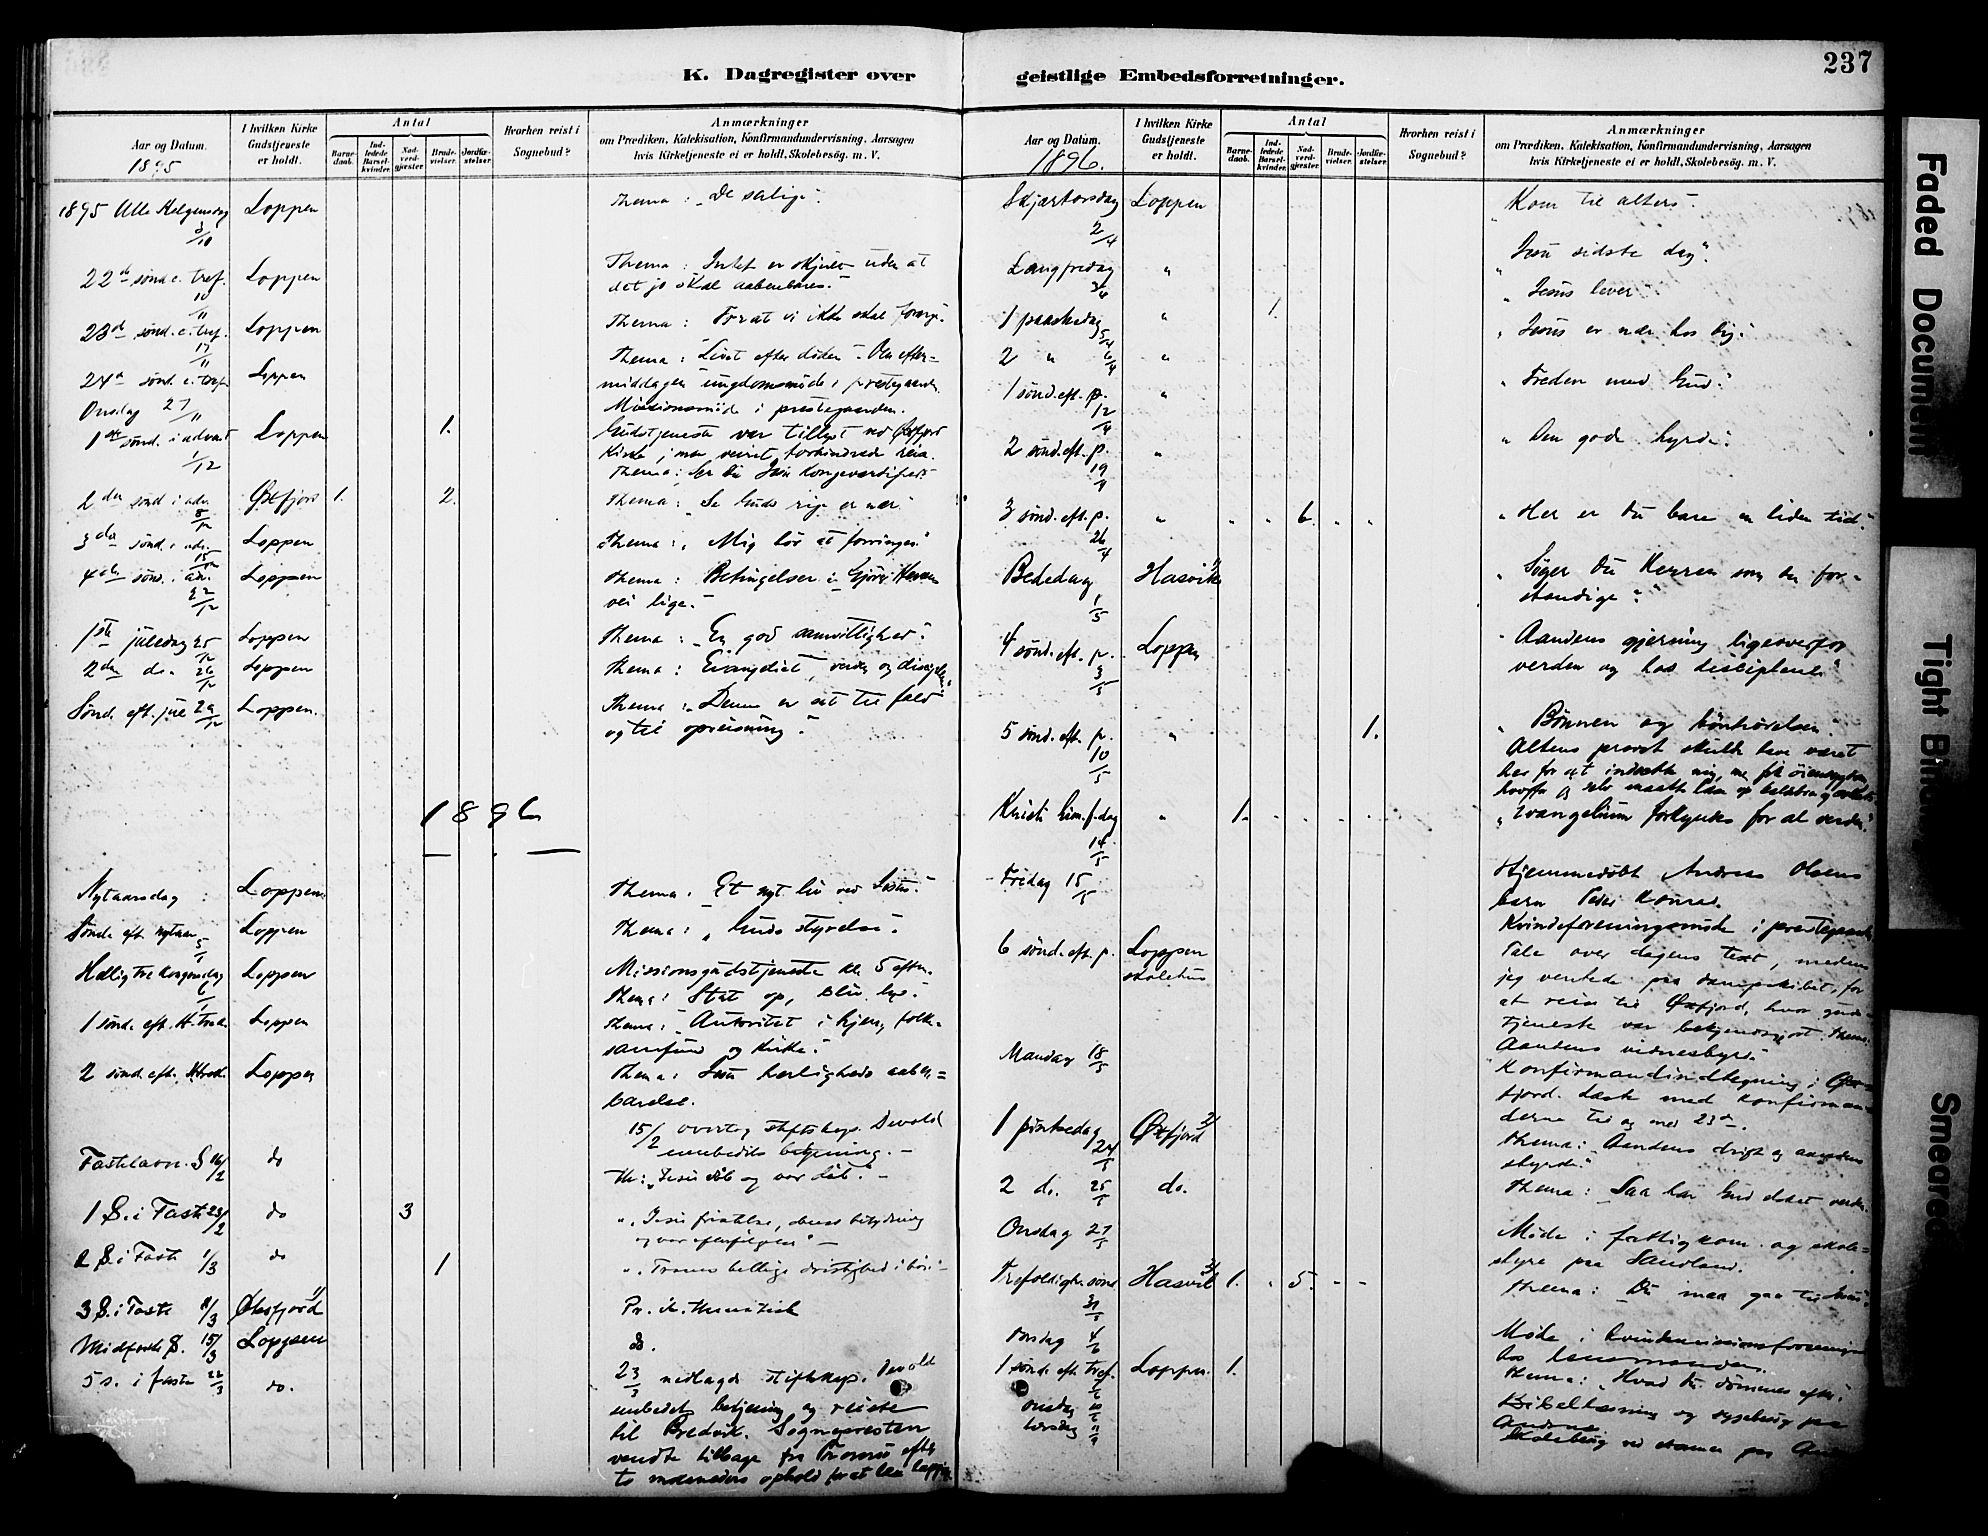 K. Dagregister over geistlige Embedsforretninger.
237
Aar og Datum.
1895
I hvilken Kirke Gudstjeneste er holdt.
Antal
Barne-daab.
Ind-ledede Barsel-kvinder.
Nad-verd-gjester.
Brude-vielser.
Jordfæ-stelser.
Hvorhen reist i Sognebud?
Anmærkninger
om Prædiken, Katekisation, Konfirmandundervisning, Aarsagen
hvis Kirketjeneste ei er holdt, Skolebesög. m. V.
1895 Alle Helgensdag Loppen Thema: „De salige“.
3/11
22de sönd. e. tref. Loppen Thema: Intet er skjult uden at
10/11 det jo skal aabenbares.“
23de sönd. e. tref. Loppen Thema: For at vi ikke skal
17/11
24de sönd. e. tref. Loppen Thema: „Livet efter döden“. Om efter=
middagen ungdomsmöde i prestegaarden.
Onsdag 27/11 Missionsmöde i prestegaarden.
1ste sönd. i advent Loppen 1. Gudstjeneste var tillyst ved Öxfjord
1/12 Kirke, men veiret forhindrede reise.
Thema: Ser du Jesu kongeværdighed.
2den sönd i adv. Öxfjord 1. 2. Thema: „Se Guds rige er nær“
8/12
3die sönd. i adv. Loppen Thema: „Mig bör at forringes“
15/12
4de sönd. i adv. Loppen Thema: Betingelser i „Gjörer Herrens
22/12 vei lige.“
1ste juledag 25/12 Loppen Thema: „En god samvittighed“.
2den do. 26/12 Loppen Thema: Evangeliet, verden og disciplene“
Sönd. eft. jul 29/12 Loppen. Thema: „Denne er sat til fald
og til opreisning“.
1896
Nytaarsdag Loppen Thema: „Et nyt liv ved Jesus“.
Sönd. eft. nytaar 5/1 Loppen Thema: „Guds styrelse“.
Hellig tre kongersdag 6/1 Loppen Missionsgudstjeneste kl. 5 efterm.
Thema: „Staa op, bliv lys“.
1 sönd. eft. H. Trek. Loppen Thema: „Autoritet i hjem, folke-
samfund og kirke“.
2 sönd. eft. H. trek. Loppen Thema: Jesu herligheds aaben=
barelse.
15/2 overtog stiftskap. Devold
embedets betjening. —
Fastelavn. S 16/2 do Th: „Jesu daab og vor daab“. —
1 S. i Faste 23/2 do 3 „ „Jesu fristelse, dens betydning
og vor efterfölgelse“ —
2 S. i Faste 1/3 do 1 „ „Troens hellige dristighed i bön“ —
3 S. i Faste 8/3 Öksfjord 1) Pr. ik. thematisk
Midfaste S. 15/3 Loppen do.
5 s. i faste 22/3 do. 23/3 nedlagde stiftskap. Devold
embedets betjening og reiste
til Bredvik. Sognepresten
vendte tilbage fra Tromsö efter
to maaneders ophold for at bli
Aar og Datum.
1896.
I hvilken Kirke Gudstjeneste er holdt.
Antal
Barne-daab.
Ind-ledede Barsel-kvinder.
Nad-verd-gjester.
Brude-vielser.
Jordfæ-stelser.
Hvorhen reist i Sognebud?
Anmærkninger
om Prædiken, Katekisation, Konfirmandundervisning, Aarsagen
hvis Kirketjeneste ei er holdt, Skolebesög. m. V.
Skjærtorsdag Loppen „ Kom til alters“
2/4
Langfredag „ „ Jesu sidste dag“.
3/4
1 paaskedag 5/4 „ 1. „ Jesus lever“
2 „ 6/4 „ „ Jesus er nær hos dig“.
1 sönd. eft. p. „ „ Freden med Gud“.
12/4
2 sönd. eft. p. „ „ Den gode hyrde“.
19/4
3 sönd. eft. p. „ „ „ 6. „ „ „ Her er du bare en liden tid“.
26/4
Bededag Hasvik „ Söger du Herren som de for-
1/5 standige“.
4 sönd. eft. p. Loppen „ Aandens gjerning ligeoverfor
3/5 verden og hos disciplene“
5 sönd. eft. p. „ 1. „ Bönnen og bönhörelsen“.
10/5 Altens provst skulde have været
her for at indsætte mig, men fik
Kristi him.f.dag „ 1. „ Evangelium forkyndes for al verden“.
14/5
Fredag 15/5 Hjemmedöbt Andreas Olsens
barn Peder Konrad.
Kvindeforeningsmöde i prestegaarden
6 sönd. eft. p. Loppen skolehus Tale over dagens text, medens
jeg ventede paa dampskibet, for
at reise til Öxfjord, hvor guds-
tjeneste var bekjendtgjort. Thema:
Aandens vidnesbyrd“
Mandag 18/5 Konfirmandindtegning i Öx-
fjord. Læste med konfirman-
derne til og med 23de.
1 pintsedag Öxfjord 2) Thema: Aandens drift og aandens
24/5 styrke“.
2 do. 25/5 do. Thema: Saa har Gud elsket verden
Onsdag 27/5 Möde i fattigkom. og skole-
styre paa Sandland.
Trefoldigh. sönd Hasvik 3) 1. „ 5. - - Thema: Du maa gaa til Jesus“
31/5
torsdag 4/6 Möde i kvindemissionsforeningen
hos lensmanden.
1 sönd. eft. tref. Loppen. 1. Thema: „Hvad du dömmes efter“.
onsdag 10/6 Bibellæsning og sygebesög paa
torsdag 11/6 Skolebesög ved examen paa
Faded Document
Tight Bin
Smeared